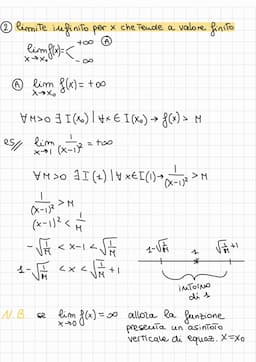 ② limite infinito per x che tende a valore finito
lim f(x) = < +∞ Ⓐ
x→x₀ -∞
Ⓐ lim f(x) = +∞
x→x₀
∀M>0 ∃ I(x₀) | ∀x∈I(x₀) → f(x) > M
es// lim 1/(x-1)² = +∞
x→1
∀M>0 ∃I(1) | ∀x∈I(1) → 1/(x-1)² > M
1/(x-1)² > M
(x-1)² < 1/M
-√1/M < x-1 < √1/M
1-√1/M < x < √1/M +1
1-√1/M 1 √1/M +1
INTORNO
di 1
N.B. se lim f(x) = ∞ allora la funzione
x→0 presenta un asintoto
verticale di equaz. x=x₀